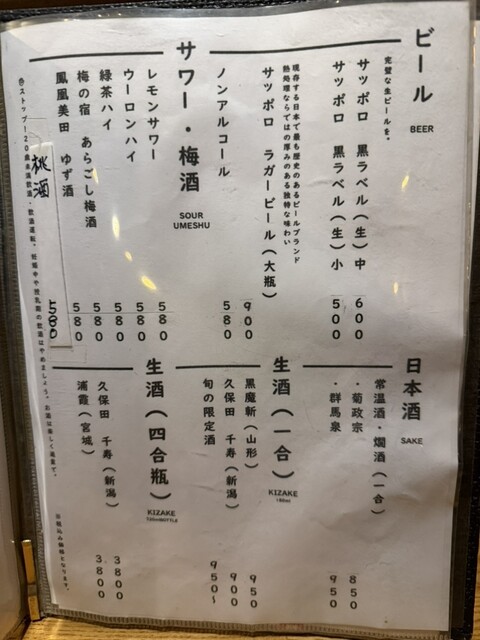 ビール
BEER
完璧な生ビールを。
サッポロ 黒ラベル(生)中 600
サッポロ 黒ラベル(生)小 500
現存する日本で最も歴史のあるビールブランド
熱処理ならではの厚みのある独特な味わい
サッポロ ラガービール(大瓶) 900
ノンアルコール 580
サワー・梅酒
SOUR
UMESHU
レモンサワー 580
ウーロンハイ 580
緑茶ハイ 580
梅の宿 あらごし梅酒 580
鳳凰美田 ゆず酒 580
桃酒 580
日本酒
SAKE
常温酒・燗酒(一合)
・菊政宗 850
・群馬泉 950
生酒(一合)
KIZAKE
180ml
黒魔斬(山形) 950
久保田 千寿(新潟) 900
旬の限定酒 950〜
生酒(四合瓶)
KIZAKE
720mlBOTTLE
久保田 千寿(新潟) 3800
浦霞(宮城) 3800
ストップ!20歳未満飲酒・飲酒運転。妊娠中や授乳期の飲酒はやめましょう。お酒は楽しく適量で。
※税込み価格となります。